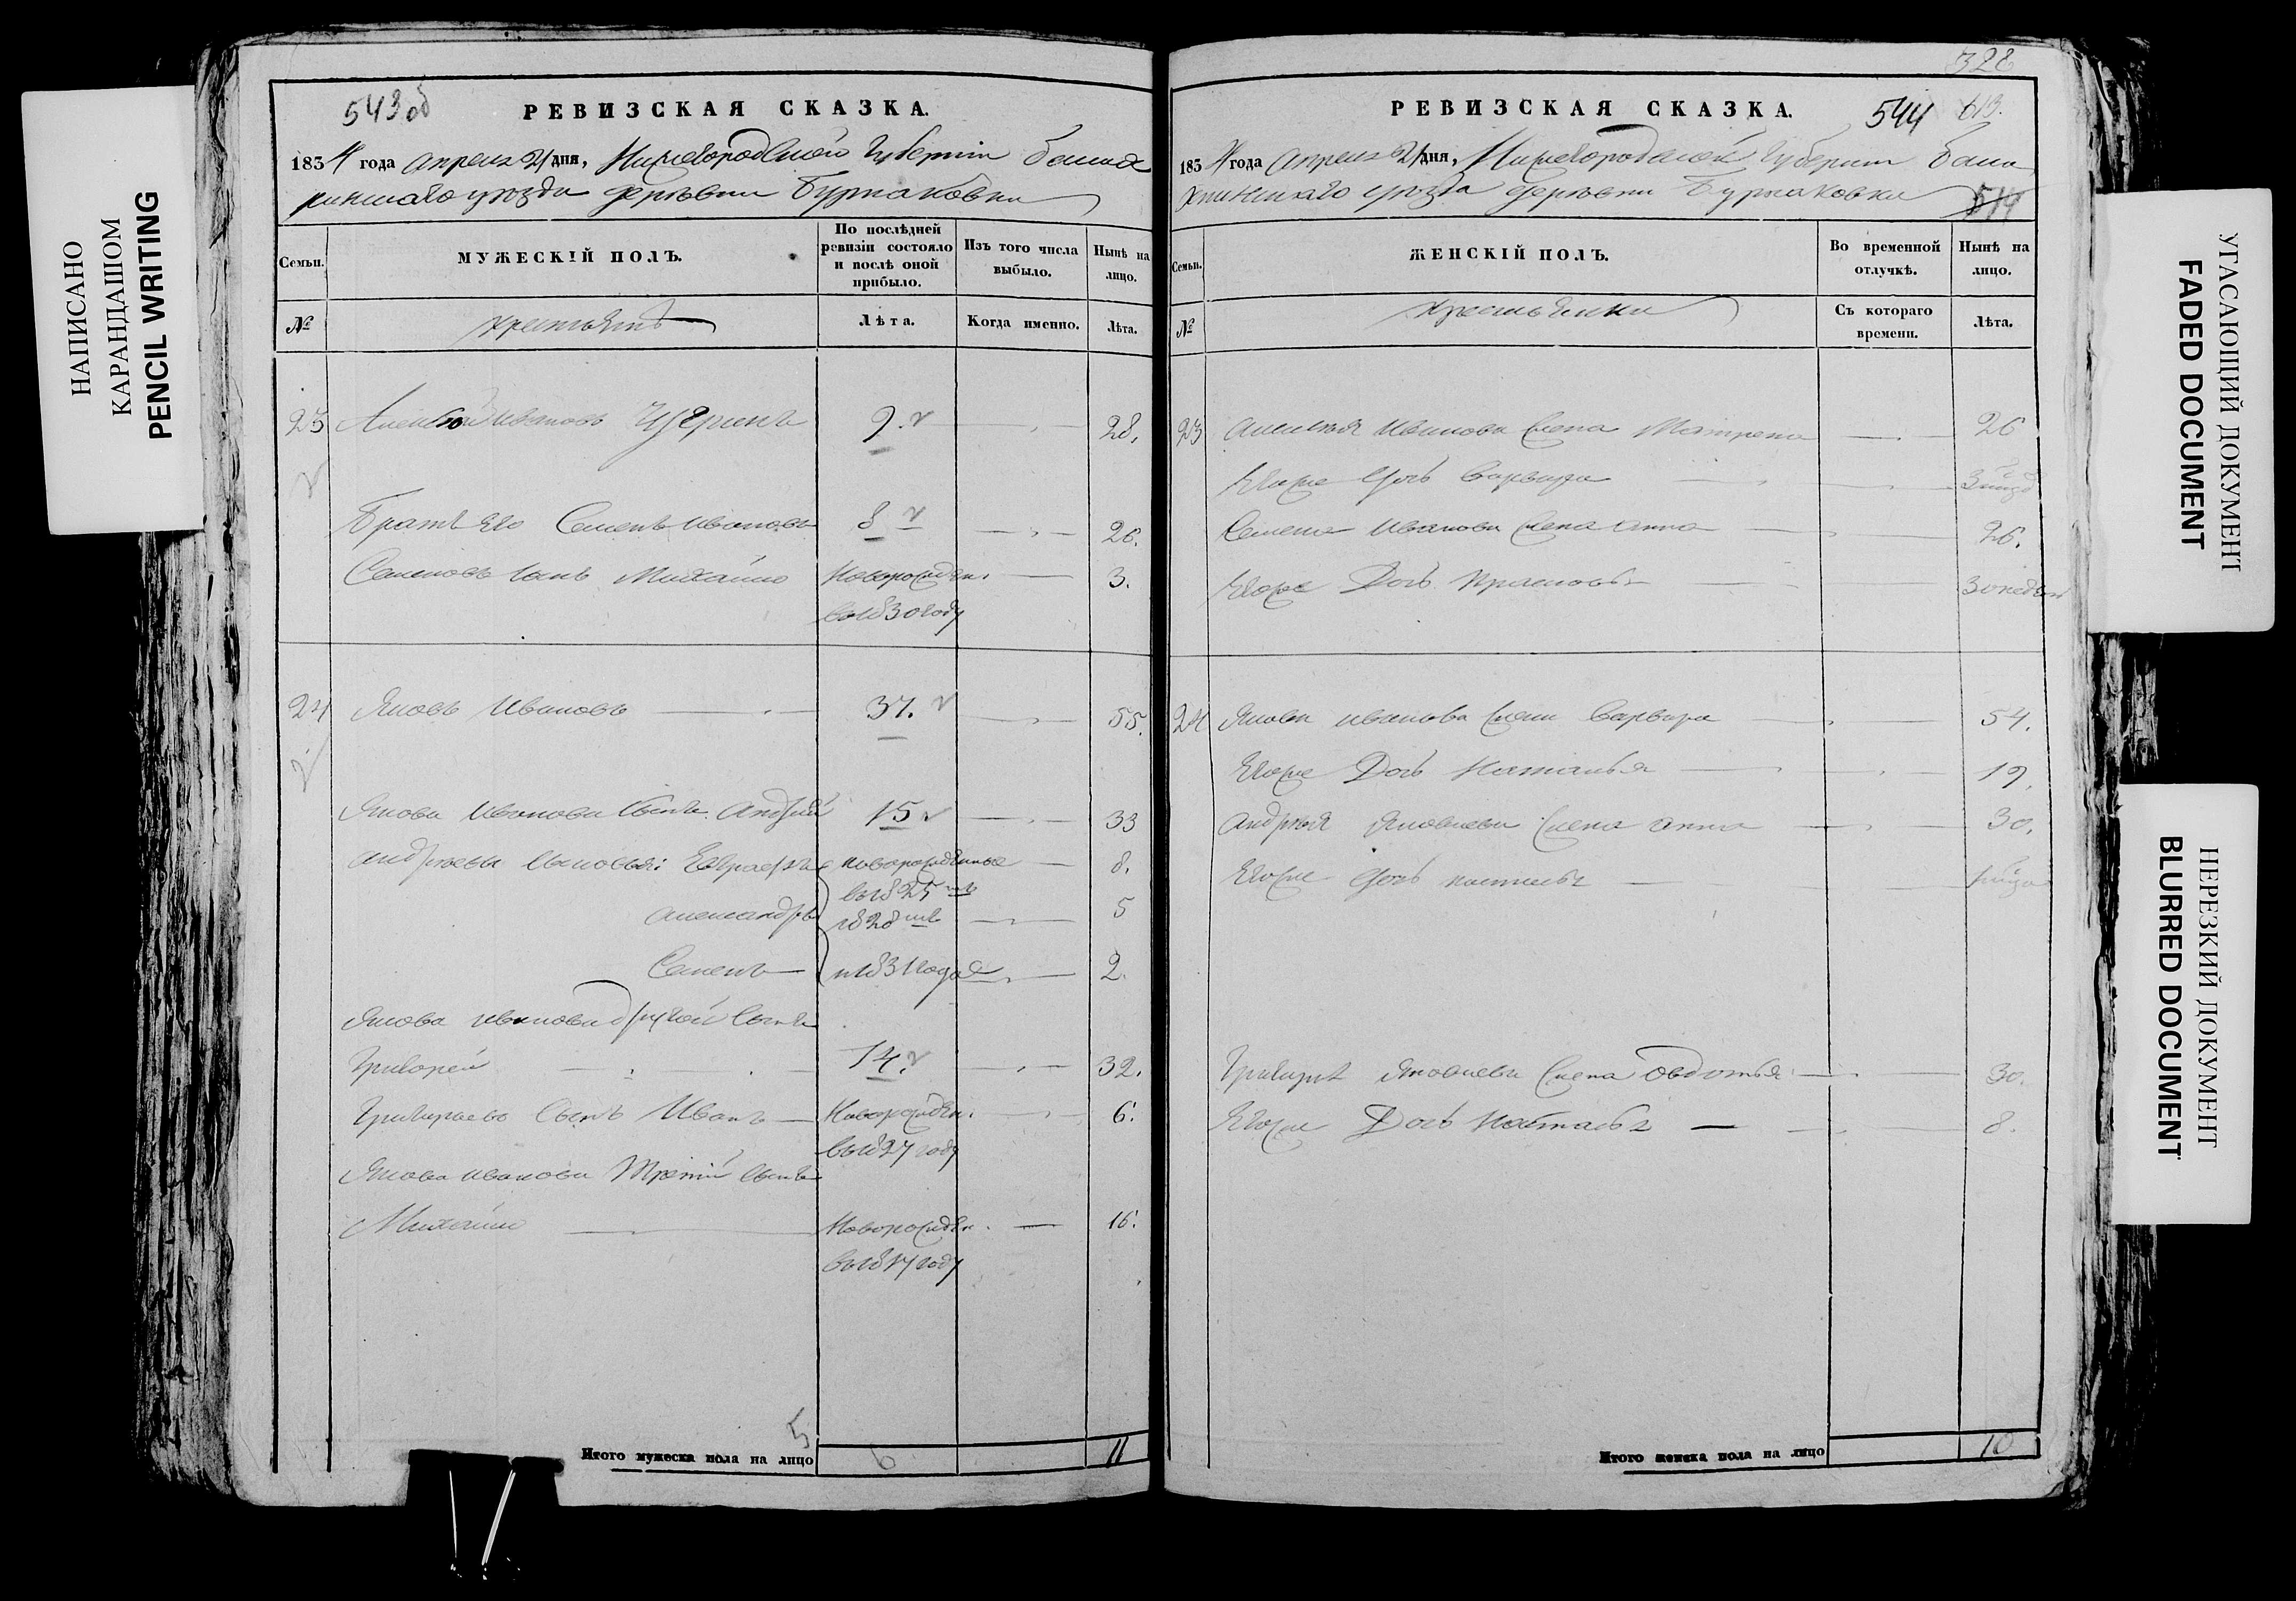 НАПИСАНО
КАРАНДАШОМ
PENCIL WRITING
543 об
РЕВИЗСКАЯ СКАЗКА.
1834 года апреля 21 дня, Нижегородской Губернии Балах
нинскаго уезда деревни Бурнаковки
Семьи.
МУЖЕСКІЙ ПОЛЪ.
По послѣдней ревизіи состояло и послѣ оной прибыло.
Изъ того числа выбыло.
Нынѣ на лицо.
№
крестьянъ
Лѣта.
Когда именно.
Лѣта.
23 Алексей Ивановъ 9. 28.
Братъ его Семенъ Ивановъ 8 26.
Семеновъ сынъ Михайло Новорожден. 3.
въ 1830 году
24 Яковъ Ивановъ 37. 55.
Якова Иванова сынъ Андрей 15 33
Андреевы сыновья: Евграфъ новорожденные 8.
въ 1825
Александръ 1828 5
Семенъ и 1831 годах 2.
Якова Иванова другой сынъ
Григорей 14. 32.
Григорьевъ сынъ Иванъ Новорожден. 6.
въ 1827 году
Якова Иванова третий сынъ
Михайло Новорожден. 16.
въ 1817 году
5
Итого мужеска пола на лицо 6 11
328
РЕВИЗСКАЯ СКАЗКА. 544 613.
1834 года апреля 21 дня, Нижегородской Губернии Бала
хнинскаго уезда деревни Бурнаковки 544
Семьи.
ЖЕНСКІЙ ПОЛЪ.
Во временной отлучкѣ.
Нынѣ на лицо.
№
крестьянки
Съ котораго времени.
Лѣта.
23 Алексея Иванова жена Матрена 26
Егоже дочь Варвара 3
Семена Иванова жена Анна 26.
Егоже дочь 30 недель
24 Якова Иванова жена Варвара 54.
Егоже дочь Наталья 19.
Андрея Яковлева жена Анна 30.
Егоже дочь
Григорья Яковлева жена Овдотья 30.
Егоже дочь Наталья 8.
Итого женска пола на лицо 10
УГАСАЮЩИЙ ДОКУМЕНТ
FADED DOCUMENT
НЕРЕЗКИЙ ДОКУМЕНТ
BLURRED DOCUMENT